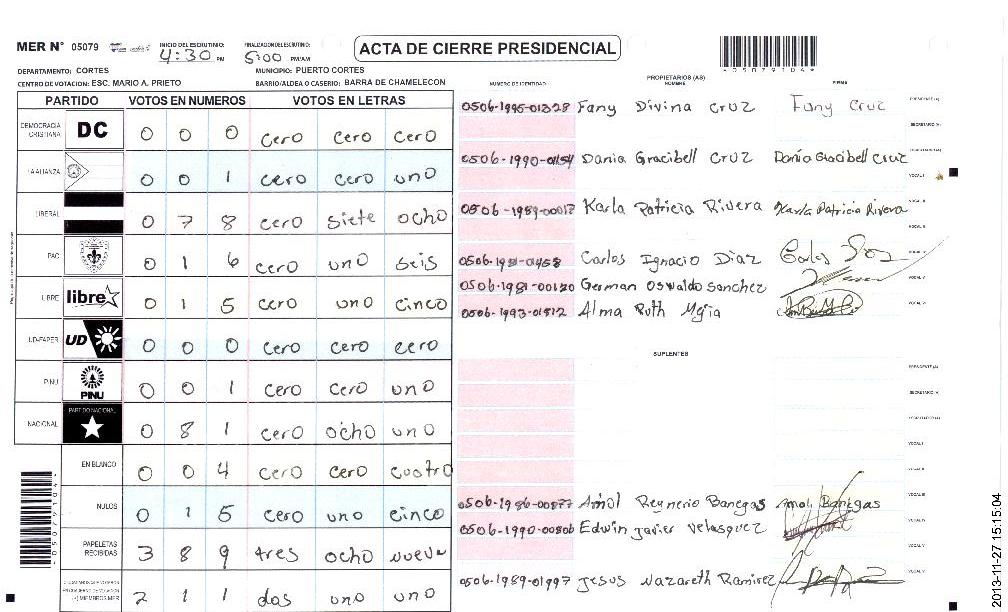 MER N° 05079 INICIO DEL ESCRUTINIO: 4:30 PM FINALIZACION DEL ESCRUTINIO: 5:00 PM/AM ACTA DE CIERRE PRESIDENCIAL
DEPARTAMENTO: CORTES MUNICIPIO: PUERTO CORTES
CENTRO DE VOTACION: ESC. MARIO A. PRIETO BARRIO/ALDEA O CASERIO: BARRA DE CHAMELECON
PARTIDO VOTOS EN NUMEROS VOTOS EN LETRAS
DEMOCRACIA CRISTIANA DC 0 0 0 cero cero cero
LA ALIANZA 0 0 1 cero cero uno
LIBERAL 0 7 8 cero siete ocho
PAC 0 1 6 cero uno seis
LIBRE libre 0 1 5 cero uno cinco
UD-FAPER UD 0 0 0 cero cero cero
PINU PINU 0 0 1 cero cero uno
NACIONAL PARTIDO NACIONAL 0 8 1 cero ocho uno
EN BLANCO 0 0 4 cero cero cuatro
NULOS 0 1 5 cero uno cinco
PAPELETAS RECIBIDAS 3 8 9 tres ocho nueve
2 1 1 dos uno uno
NUMERO DE IDENTIDAD PROPIETARIOS (AS) NOMBRE FIRMA
0506-1995-01328 Fany Divina Cruz Fany Cruz PRESIDENTE (A)
SECRETARIO (A)
0506-1990-01154 Dania Gracibell Cruz Dania Gracibell Cruz
VOCAL I
0506-1989-00017 Karla Patricia Rivera Karla Patricia Rivera
Carlos Ignacio Diaz Carlos
0506-1981-00120 German Oswaldo Sanchez
0506-1993-01512 Alma Ruth Mejia
SUPLENTES
PRESIDENTE (A)
SECRETARIO (A)
0506-1986-00877 Amol Reynerio Banegas Amol Banegas
0506-1990-00806 Edwin Javier Velasquez
0506-1989-01997 Jesus Nazareth Ramirez
2013-11-27 15:15:04